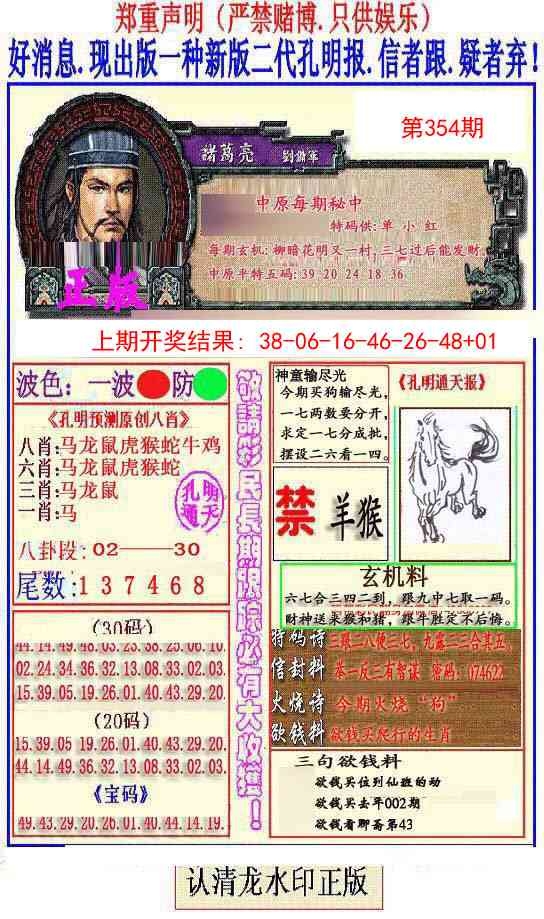 郑重声明（严禁赌博.只供娱乐）
好消息.现出版一种新版二代孔明报.信者跟.疑者弃！
第354期
諸葛亮
中原每期秘中
特码供:单 小 红
每期玄机:柳暗花明又一村,三七过后能发财.
中原平特五码:39 20 24 18 36
正版
上期开奖结果: 38-06-16-46-26-48+01
波色：一波 防
《孔明预测原创八肖》
八肖:马龙鼠虎猴蛇牛鸡
六肖:马龙鼠虎猴蛇
三肖:马龙鼠
一肖:马
孔明
通天
八卦段:02——30
尾数:1 3 7 4 6 8
(30码)
44.14.49.48.03.23.38.25.06.10.
02.24.34.36.32.13.08.33.02.03.
15.39.05.19.26.01.40.43.29.20.
(20码)
15.39.05 19.26.01.40.43.29.20.
44.14.49.36.32.13.08.33.02.03.
《宝码》
49.43.29.20.26.01.40.44.14.19.
敬請彩民長期跟踪必有大收獲！
神童输尽光
今期买狗输尽光，
一七两数要分开，
求定一七分成批，
摆设二六看一四。
《孔明通天报》
禁 羊猴
玄机料
六七合三四二到，跟九中七取一码。
财神送来猴和猪，跟牛胜定不后悔。
特码诗 三跟二八便三七，九露二三合其五。
信封料 举一反三有智谋 密码：074622
火烧诗 今期火烧“狗”
欲钱料 欲钱买爬行的生肖
三句欲钱料
欲钱买位到仙班的动
欲钱买去年002期
欲钱看聊斋第43
认清龙水印正版